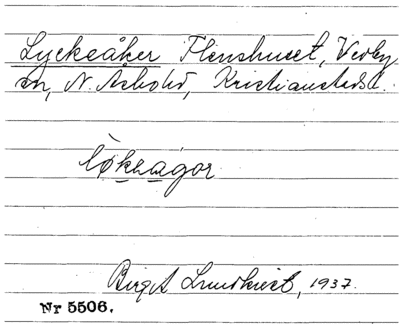 Lyckeåker Flenshuset, Verby
sn, N. Åsbohd, Kristianstads l.
lökkågor
Birgit Lundkvist, 1937.
Nr 5506.